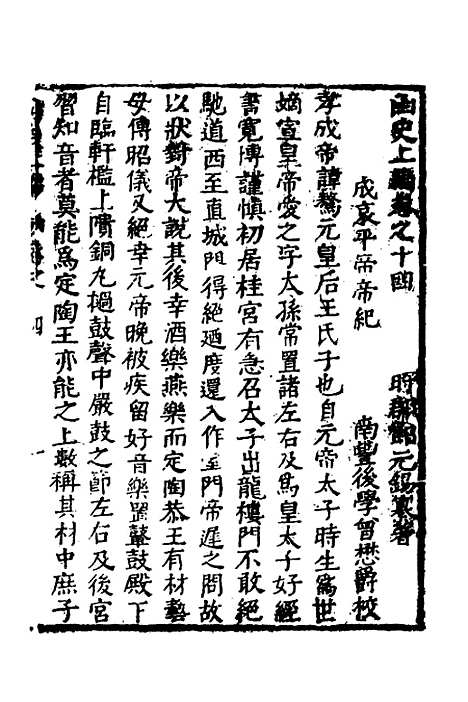 函史上編卷之十四
盱郡鄧元錫纂著
成哀平帝帝紀
南豐後學曾懋爵校
孝成帝諱驁元皇后王氏子也自元帝太子時生爲世
嫡宣皇帝愛之字太孫常置諸左右及爲皇太子好經
書寬博謹愼初居桂宮有急召太子出龍樓門不敢絕
馳道西至直城門得絕廼度還入作室門帝遲之問故
以狀對帝大說其後幸酒樂燕樂而定陶恭王有材藝
母傅昭儀又絕幸元帝晚被疾留好音樂置鼙鼓殿下
自臨軒檻上隤銅丸擿鼓聲中嚴鼓之節左右及後宮
習知音者莫能爲定陶王亦能之上數稱其材中庶子